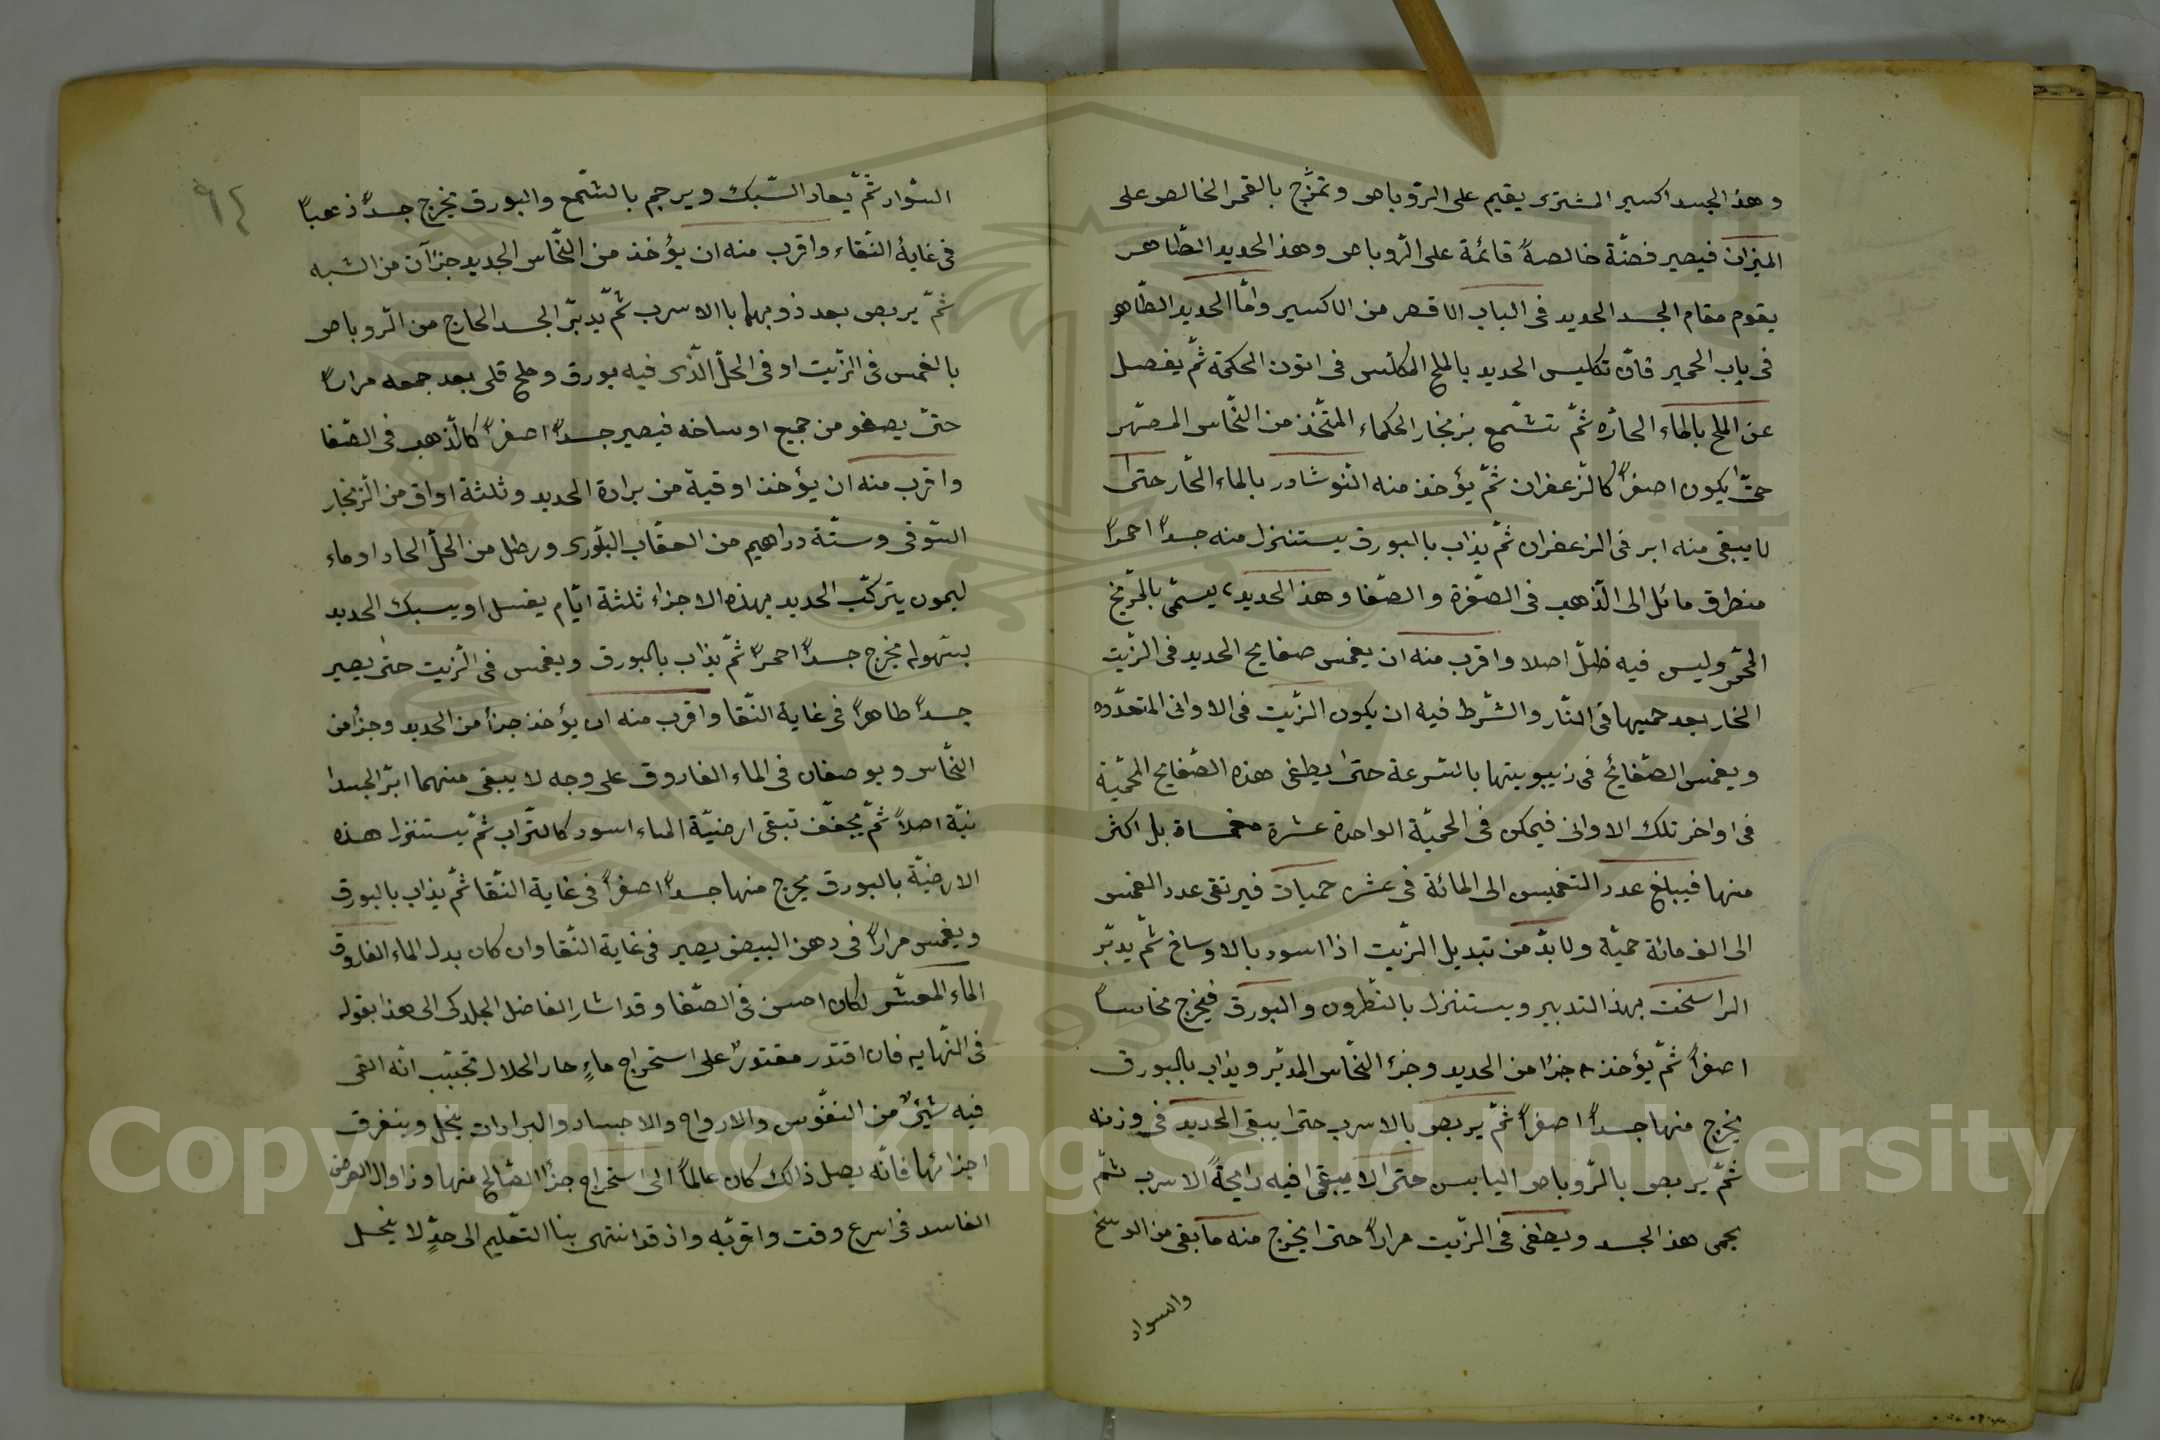 وهذ الجسد اكسير المشترى يقيم على الرّوباص وتمزّج بالقمر الخالص على
الميزان فيصير فضّة خالصةً قائمة على الرّوباص وهذ الحديد الطّاهر
يقوم مقام الجسد الحديد فى الباب الاقمر من الاكسير وامّا الحديد الطّاهر
فى باب الحمير فانّ تكليس الحديد بالملح المكلّس فى اتون الحكمة ثمّ يغصل
عن الملح بالماء الحارّه ثمّ تتشمّع بزنجار الحكماء المتّخذ من النّحاس المصّهر
حتّى يكون اصفراً كالزّعفران ثمّ يؤخذ منه النّوشادر بالماء الحّار حتى
لا يبقى منه ابر فى الزعفران ثمّ يذاب بالبورق يستنزل منه جسداً احمراً
منطرق مائل الى الذّهب فى الصّفرة والصّفا وهذ الحديد يسمّى بالمرّيخ
المحّمر وليس فيه ظلّ اصلا واقرب منه ان يغمس صفايح الحديد فى الزّيت
الخار بعد حميها فى النّار والشّرط فيه ان يكون الزّيت فى الاوانى المتعدّده
ويغمس الصّفائح فى زيبويتها بالسّرعة حتى يطفى هذه الصّفايح المحميّة
فى اواخر تلك الاوانى فيمكن فى الحميّة الواحدة عشرة مغمساة بل اكثر
منها فيبلغ عدد التغميس الى المائة فى عشر حميات فيرتقى عدد الغمس
الى الف مائة حميّة ولا بدّ من تبديل الزّيت اذا اسود بالاوساخ ثمّ يدبّر
الراسخت بهذ التدبير ويستنزل بالنّطرون والبورق فيخرج نحاساً
اصفراً ثمّ يؤخذ جزاً من الحديد وجزء النّحاس المدبّر ويذاب بالبورق
يخرج منها جسداً اصفراً ثمّ يربص بالاسرب حتى يبقى الحديد فى وزنه
ثمّ يربص بالرّوباص اليابس حتى لا يبقى فيه رايحةً الاسرب ثمّ
يحمى هذ الجسد ويطفى فى الزّيت مراراً حتى يخرج منه ما بقى من الوسخ
والسواد
٩٤
السّواد ثمّ يعاد السّبك ويرجم بالشّمع والبورق يخرج جسداً ذهباً
فى غاية النّقاء واقرب منه ان يؤخذ من النّحاس الجديد جزآن من الشبه
ثمّ يربص بعد ذوبهما باالاسرب ثمّ يدبّر الجسد الخارج من الرّوباص
بالغمس فى الزّيت او فى الخلّ الّذى فيه بورق وملح قلى بعد جمعه مراراً
حتىّ يصفو من جميع اوساخه فيصير جسداً اصفراً كالذّهب فى الصّفا
واقرب منه ان يؤخذ اوقية من برادة الحديد وثلثة اواق من الزّنجار
السّوقى وستّة دراهيم من العقّاب البلّورى ورطل من الخلّ الحاد او ماء
ليمون يتركّب الحديد بهذه الاجزاء ثلثة ايّام يغسل او يسبك الحديد
بسهوله يخرج جسداً احمراً ثمّ يذاب بالبورق ويغمس فى الزّيت حتى يصير
جسداً طاهراً فى غاية النّقا واقرب منه ان يؤخذ جزأ من الحديد وجزأ من
النّحاس ويوصفان فى الماء الفاروق على وجه لا يبقى منهما ابرّ الجسدا
نيّة اصلاً ثمّ يجفّف تبقى ارضيّة الماء اسود كالتّراب ثمّ يستنزل هذه
الارضيّة بالبورق يخرج منها جسداً اصفراً فى غاية النّقا ثمّ يذاب بالبورق
ويغمس مراراً فى دهن البيض يصير فى غاية النّقا وان كان بدل الماء الفاروق
الماء المعشّر لكان احسن فى الصّفا وقد اشار الفاضل الجلدكى الى هذ ابقوله
فى النّهايه فان اقتدر مقتدرٌ على استخراج ماءٍ حار الحلال تجبّب انّه القى
فيه شيئٌ من النفّوس والارواح والاجساد والبرادات ينحل ويتفرق
اجزائها فانّه يصل ذالك كان عالماً الى استخراج جزأ الصّالح منها وزاوال العرض
الفاسد فى اسرع وقت واقربّه واذ قد انتهى بنا التّعليم الى حدٍّ لا ينحل
Copyright © King Saud University